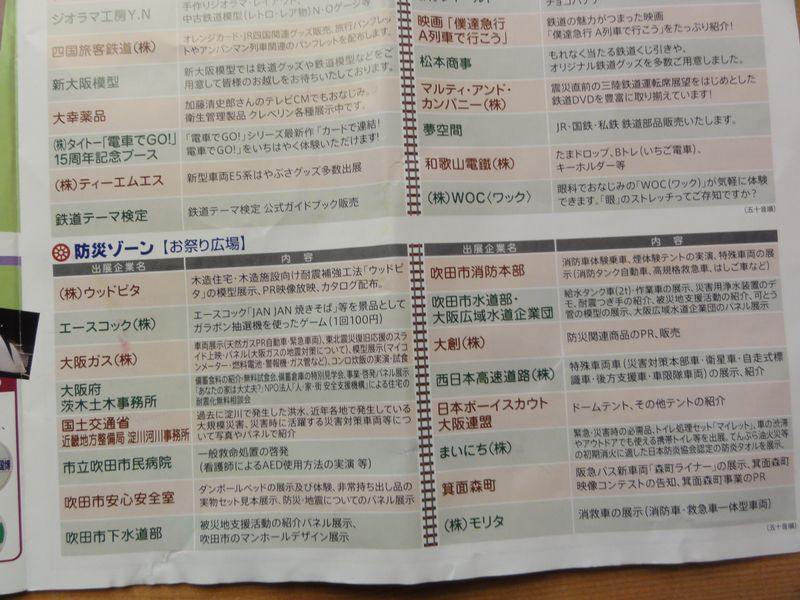 手作りジオラマ・レイアウト、
ジオラマ工房Y.N
中古鉄道模型(レトロ・レア物)N・Oゲージ等
四国旅客鉄道(株)
オレンジカード・JR四国関連グッズ販売、旅行パンフレッ
トやアンパンマン列車関連のパンフレットを配布します。
新大阪模型
新大阪模型では鉄道グッズや鉄道模型などをご
用意して皆様のお越しをお待ちいたしております。
大幸薬品
加藤清史郎さんのテレビCMでもおなじみ。
衛生管理製品 クレベリン各種展示中です。
(株)タイトー「電車でGO!」
15周年記念ブース
「電車でGO!」シリーズ最新作「カードで連結!
電車でGO!」をいちはやく体験いただけます!
(株)ティーエムエス
新型車両E5系はやぶさグッズ多数出展
鉄道テーマ検定
鉄道テーマ検定 公式ガイドブック販売
映画「僕達急行
A列車で行こう」
鉄道の魅力がつまった映画
「僕達急行 A列車で行こう」をたっぷり紹介!
松本商事
もれなく当たる鉄道くじ引きや、
オリジナル鉄道グッズを多数ご用意しました。
マルティ・アンド・
カンパニー(株)
震災直前の三陸鉄道運転席展望をはじめとした
鉄道DVDを豊富に取り揃えています!
夢空間
JR・国鉄・私鉄 鉄道部品販売いたします。
和歌山電鐵(株)
たまドロップ、Bトレ(いちご電車)、
キーホルダー等
(株)WOC〈ワック〉
眼科でおなじみの「WOC(ワック)」が気軽に体験
できます。「眼」のストレッチってご存知ですか?
(五十音順)
防災ゾーン【お祭り広場】
出展企業名 内容
(株)ウッドピタ
木造住宅・木造施設向け耐震補強工法「ウッドピ
タ」の模型展示、PR映像放映、カタログ配布。
エースコック(株)
エースコック「JAN JAN 焼きそば」等を景品として
ガラポン抽選機を使ったゲーム(1回100円)
大阪ガス(株)
車両展示(天然ガスPR自動車・緊急車両)、東北震災復旧応援のスラ
イド上映・パネル(大阪ガスの地震対策について)、模型展示(マイコ
ンメーター・燃料電池・警報機・ガス管など)、コンロ炊飯の実演・試食
大阪府
茨木土木事務所
備蓄食料の紹介・無料試食会、備蓄倉庫の特別見学会、事業・啓発パネル展示
「あなたの家は大丈夫?」NPO法人「人・家・街 安全支援機構」による住宅の
耐震化無料相談会
国土交通省
近畿地方整備局 淀川河川事務所
過去に淀川で発生した洪水、近年各地で発生している
大規模災害、災害時に活躍する災害対策車両等につ
いて写真やパネルで紹介
市立吹田市民病院
一般救命処置の啓発
(看護師によるAED使用方法の実演 等)
吹田市安心安全室
ダンボールベッドの展示及び体験、非常持ち出し品の
実物セット見本展示、防災・地震についてのパネル展示
吹田市下水道部
被災地支援活動の紹介パネル展示、
吹田市のマンホールデザイン展示
出展企業名 内容
吹田市消防本部
消防車体験乗車、煙体験テントの実演、特殊車両の展
示(消防タンク自動車、高規格救急車、はしご車など)
吹田市水道部・
大阪広域水道企業団
給水タンク車(2t)・作業車の展示、災害用浄水装置のデ
モ、耐震つぎ手の紹介、被災地支援活動の紹介、可とう
管の模型の展示、大阪広域水道企業団のパネル展示
大創(株)
防災関連商品のPR、販売
西日本高速道路(株)
特殊車両車(災害対策本部車・衛星車・自走式標
識車・後方支援車・車限隊車両)の展示、紹介
日本ボーイスカウト
大阪連盟
ドームテント、その他テントの紹介
まいにち(株)
緊急・災害時の必需品、トイレ処理セット「マイレット」、車の渋滞
やアウトドアでも使える携帯トイレ等を出展。てんぷら油火災等
の初期消火に適した日本防炎協会認定の防炎タオルを展示。
箕面森町
阪急バス新車両「森町ライナー」の展示、箕面森町
映像コンテストの告知、箕面森町事業のPR
(株)モリタ
消救車の展示(消防車・救急車一体型車両)
(五十音順)